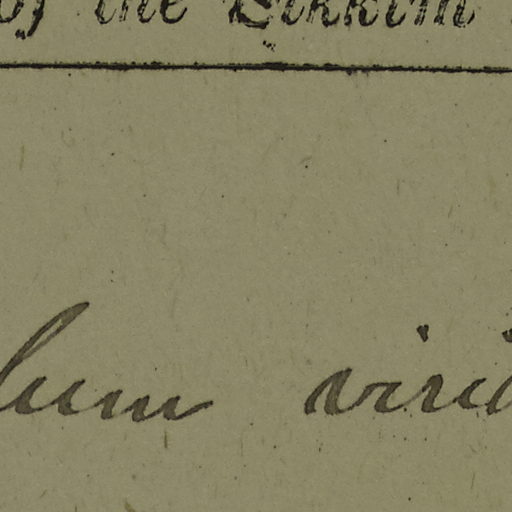 of the Sikkim
lum viri